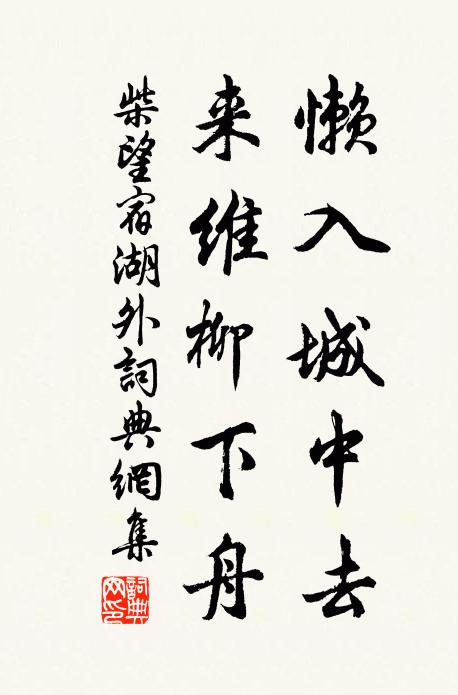 懒入城中去
来维柳下舟
柴望宿湖外詞典網集
詞典网印